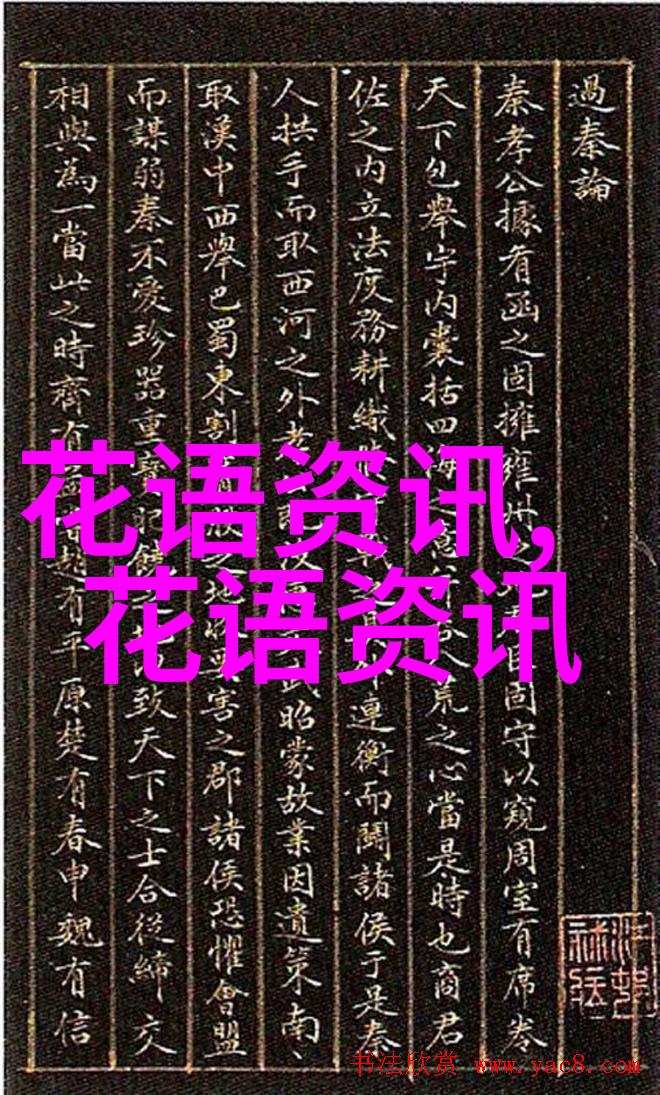 過秦論
秦孝公據肴函之固擁雍州之固守以窺周室有席卷
天下包舉宇内囊括四海荒之心當是時也商君
佐之内立法度務耕織連衡而鬭諸侯于是秦
人拱手而取西河之外武昭蒙故業因遺策南
取漢中西舉巴蜀東割之害之郡諸侯恐懼會盟
而謀弱秦不愛珍器重致天下之士合從締交
相與為一當此之時齊有趙有平原楚有春申魏有信
花语资讯,
花语资讯
书法欣赏 www.yac8.com